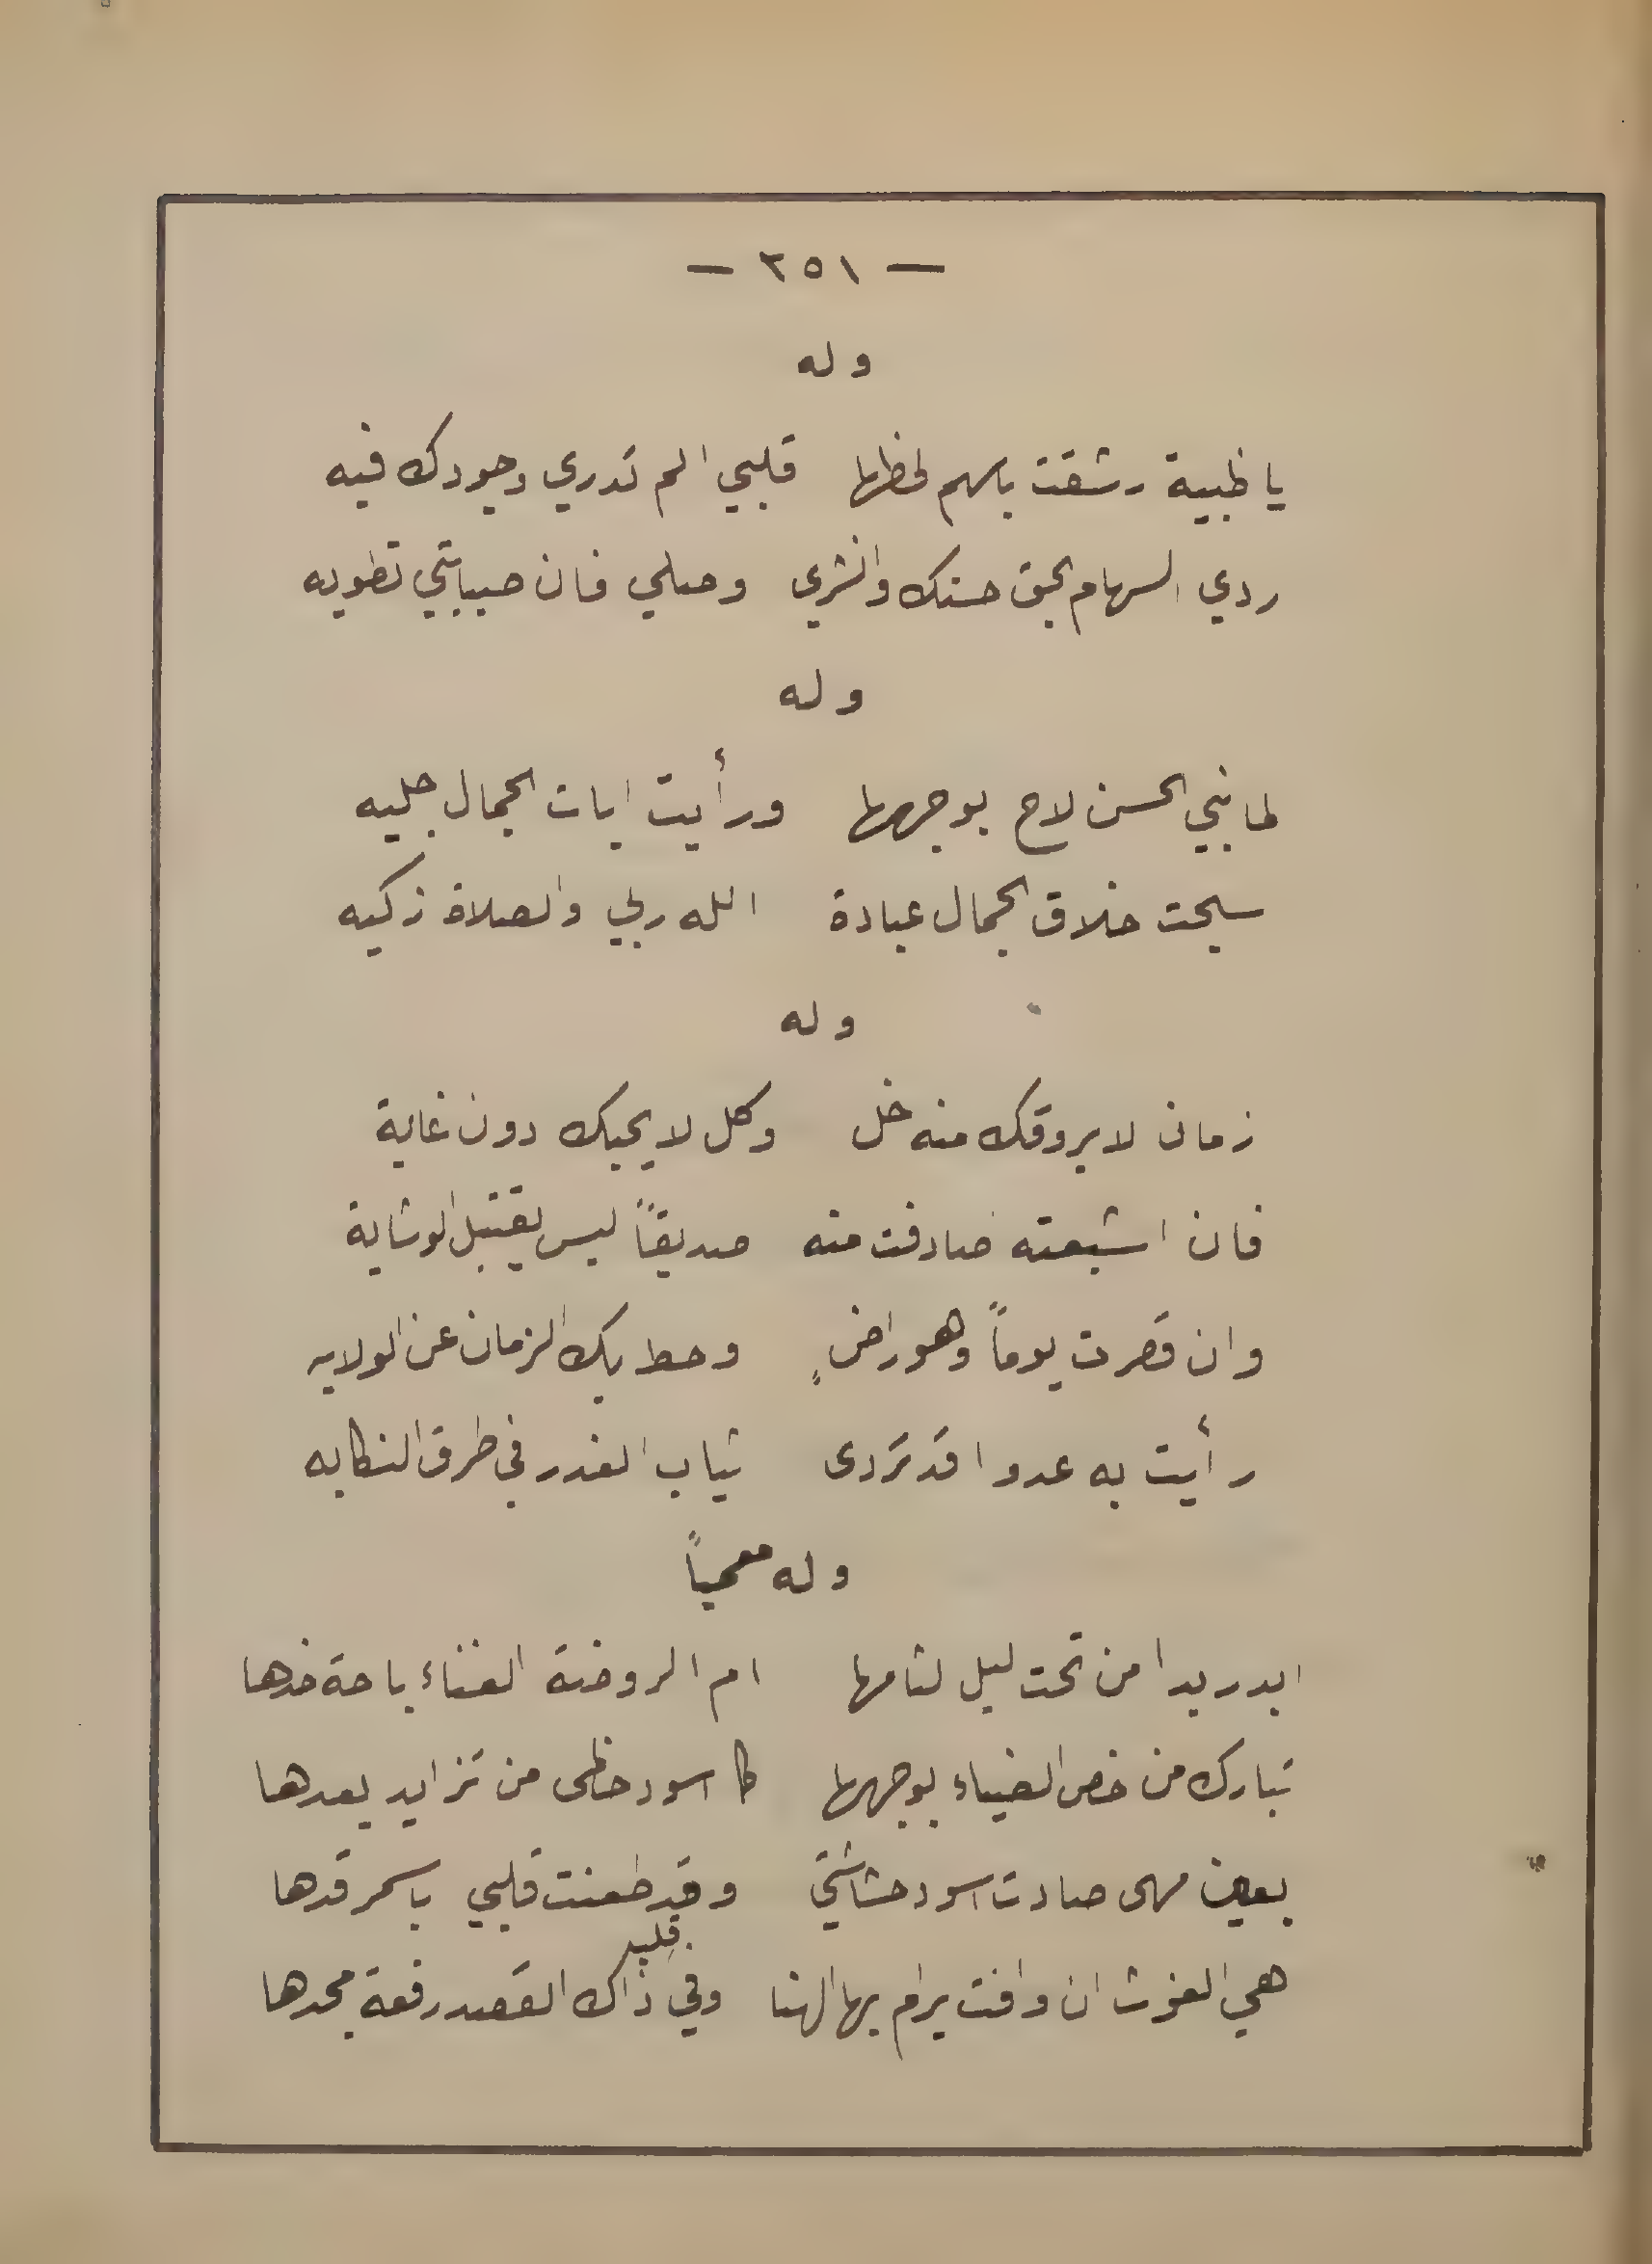 — ٢٥١ —
وله
يا ظبية رشقت باسهم لحظها قلبي الم تدري وجودك فيه
ردي السهام بحق حسنك وانشري وصلي فان صبابتي تطويه
وله
لما نبي الحسن لاح بوجهها ورأيت ايات الجمال جليه
سبحت خلاق الجمال عبادة الله ربي والصلاة زكيه
وله
زمان لا يروقك منه خل وكل لا يحبك دون غاية
فان اشبعته صادفت منه صديقاً ليس يقتبل الوشاية
وان قصرت يوماً وهو راضٍ وحط بك الزمان عن الولايه
رأيت به عدوا قد تردى ثياب الغدر في طرق النكايه
وله معمياً
ابدر بدا من تحت ليل لثامها ام الروضة الغناء باحة خدها
تبارك من خص الضياء بوجهها كما اسود حظى من تزايد بعدها
بعين مهى صادت اسود حشاشتي وقد طعنت قلبي باسمر قدها
هي الغوث ان وافت يرام بها الهنا وفي ذاك القصد رفعة مجدها